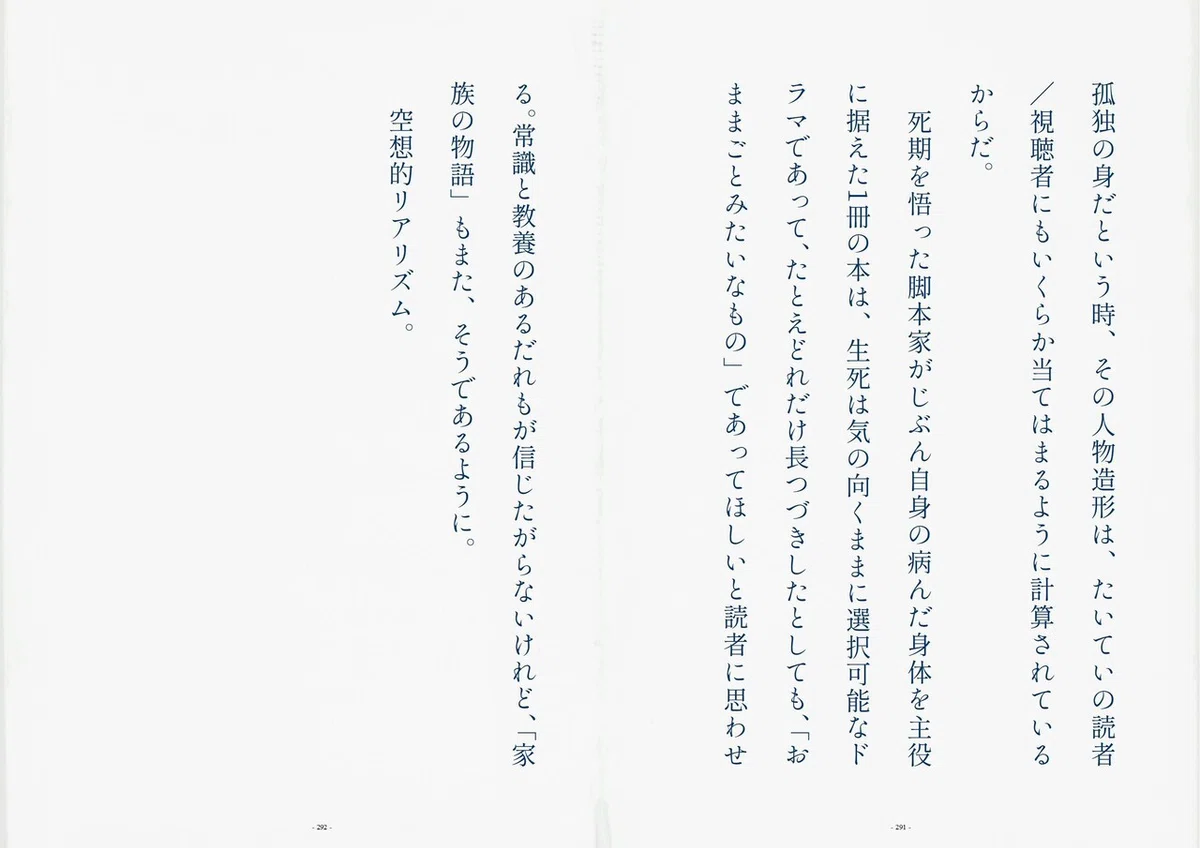 孤独の身だという時、その人物造形は、たいていの読者
／視聴者にもいくらか当てはまるように計算されている
からだ。
死期を悟った脚本家がじぶん自身の病んだ身体を主役
に据えた1冊の本は、生死は気の向くままに選択可能なド
ラマであって、たとえどれだけ長つづきしたとしても、「お
ままごとみたいなもの」であってほしいと読者に思わせ
- 291 -
る。常識と教養のあるだれもが信じたがらないけれど、「家
族の物語」もまた、そうであるように。
空想的リアリズム。
- 292 -